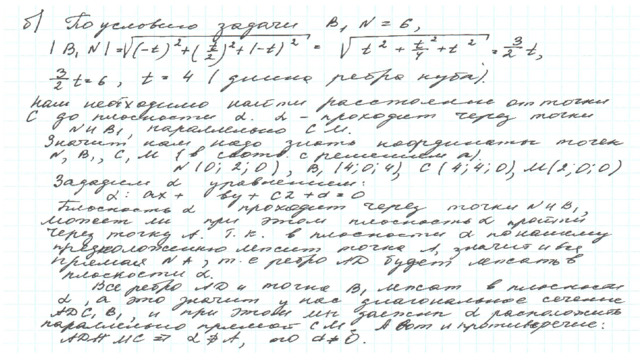 б) По условию задачи B₁N = 6,
|B₁N| = √((-t)² + (t/2)² + (-t)²) = √(t² + t²/4 + t²) = 3/2 t,
3/2 t = 6, t = 4 (длина ребра куба).
Нам необходимо найти расстояние от точки
C до плоскости α. α - проходит через точки
N и B₁, параллельно CM.
Значит нам надо знать координаты точек
N, B₁, C, M (в соотв. с решением а),
N(0; 2; 0), B₁(4; 0; 4), C(4; 4; 0), M(2; 0; 0)
Зададим α уравнением:
α: ax + by + cz + d = 0
Плоскость α проходит через точки N и B₁,
может ли при этом плоскость α пройти
через точку A. Т.к. в плоскости α по нашему
предположению лежит точка A, значит и вся
прямая NA, т.е ребро AD будет лежать в
плоскости α.
Все ребро AD и точка B₁ лежат в плоскости
α, а это значит у нас диагональное сечение
ADC₁B₁, и при этом мы должны α расположить
параллельно прямой CM. А вот и противоречие:
AD∦MC ⇒ α∌A, то d≠0.